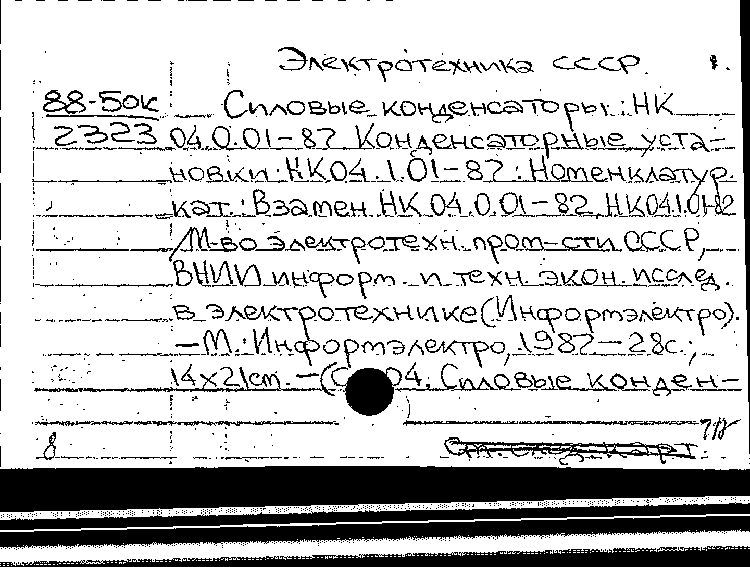 Электротехника СССР. 1.
88-50к Силовые конденсаторы: НК
2323 04.0.01-87 Конденсаторные уста-
новки: НК04.1.01-87: Номенклатур.
кат.: Взамен НК 04.0.01-82, НК04.1.01-82
/М-во электротехн. пром-сти СССР,
ВНИИ информ. и техн. экон. исслед.
в электротехнике (Информэлектро).
—М.: Информэлектро, 1987—28с.;
14х21cm. —( 04. Силовые конден-
8 См. след. карт.